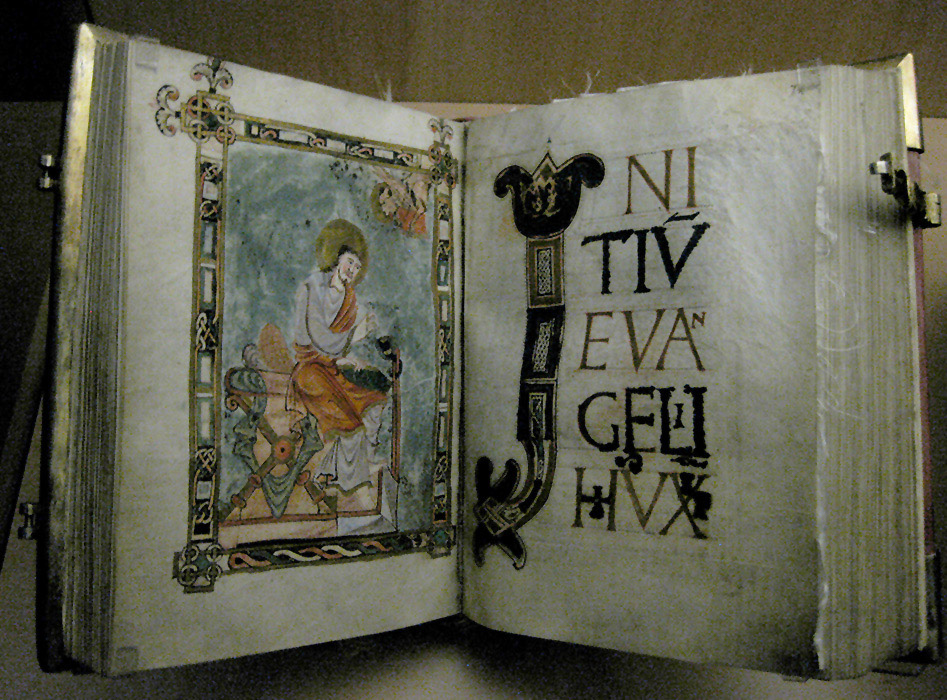 INI
TIV̄
EVAN
GELII
IHVX̄